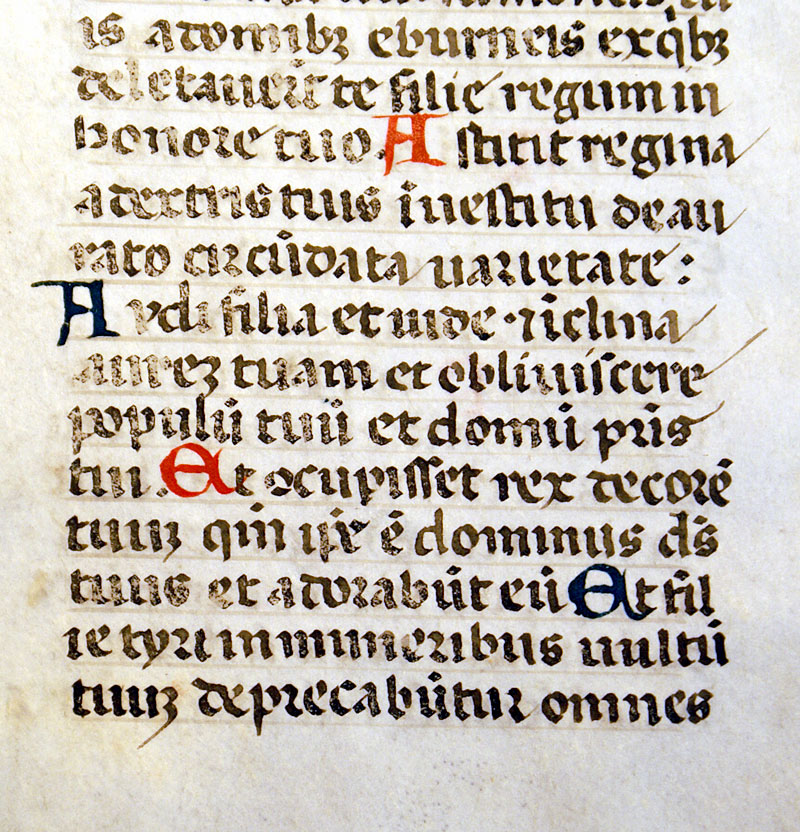 is a domibꝫ eburneis exqͥbꝫ
delectaverūt te filie regum in
honore tuo. Astitit regina
a dextris tuis i vestitu deau
rato circūdata varietate:
Audi filia et vide ⁊ iclina
aureꝫ tuam et obliviscere
populū tuū et domū pris
tui. Et ocupisset rex decorē
tuuꝫ qm̄ ip̄e ē dominus ds̄
tuus et adorabūt eū Et fil
ie tyri in muneribus vultū
tuuꝫ deprecabūtur omnes